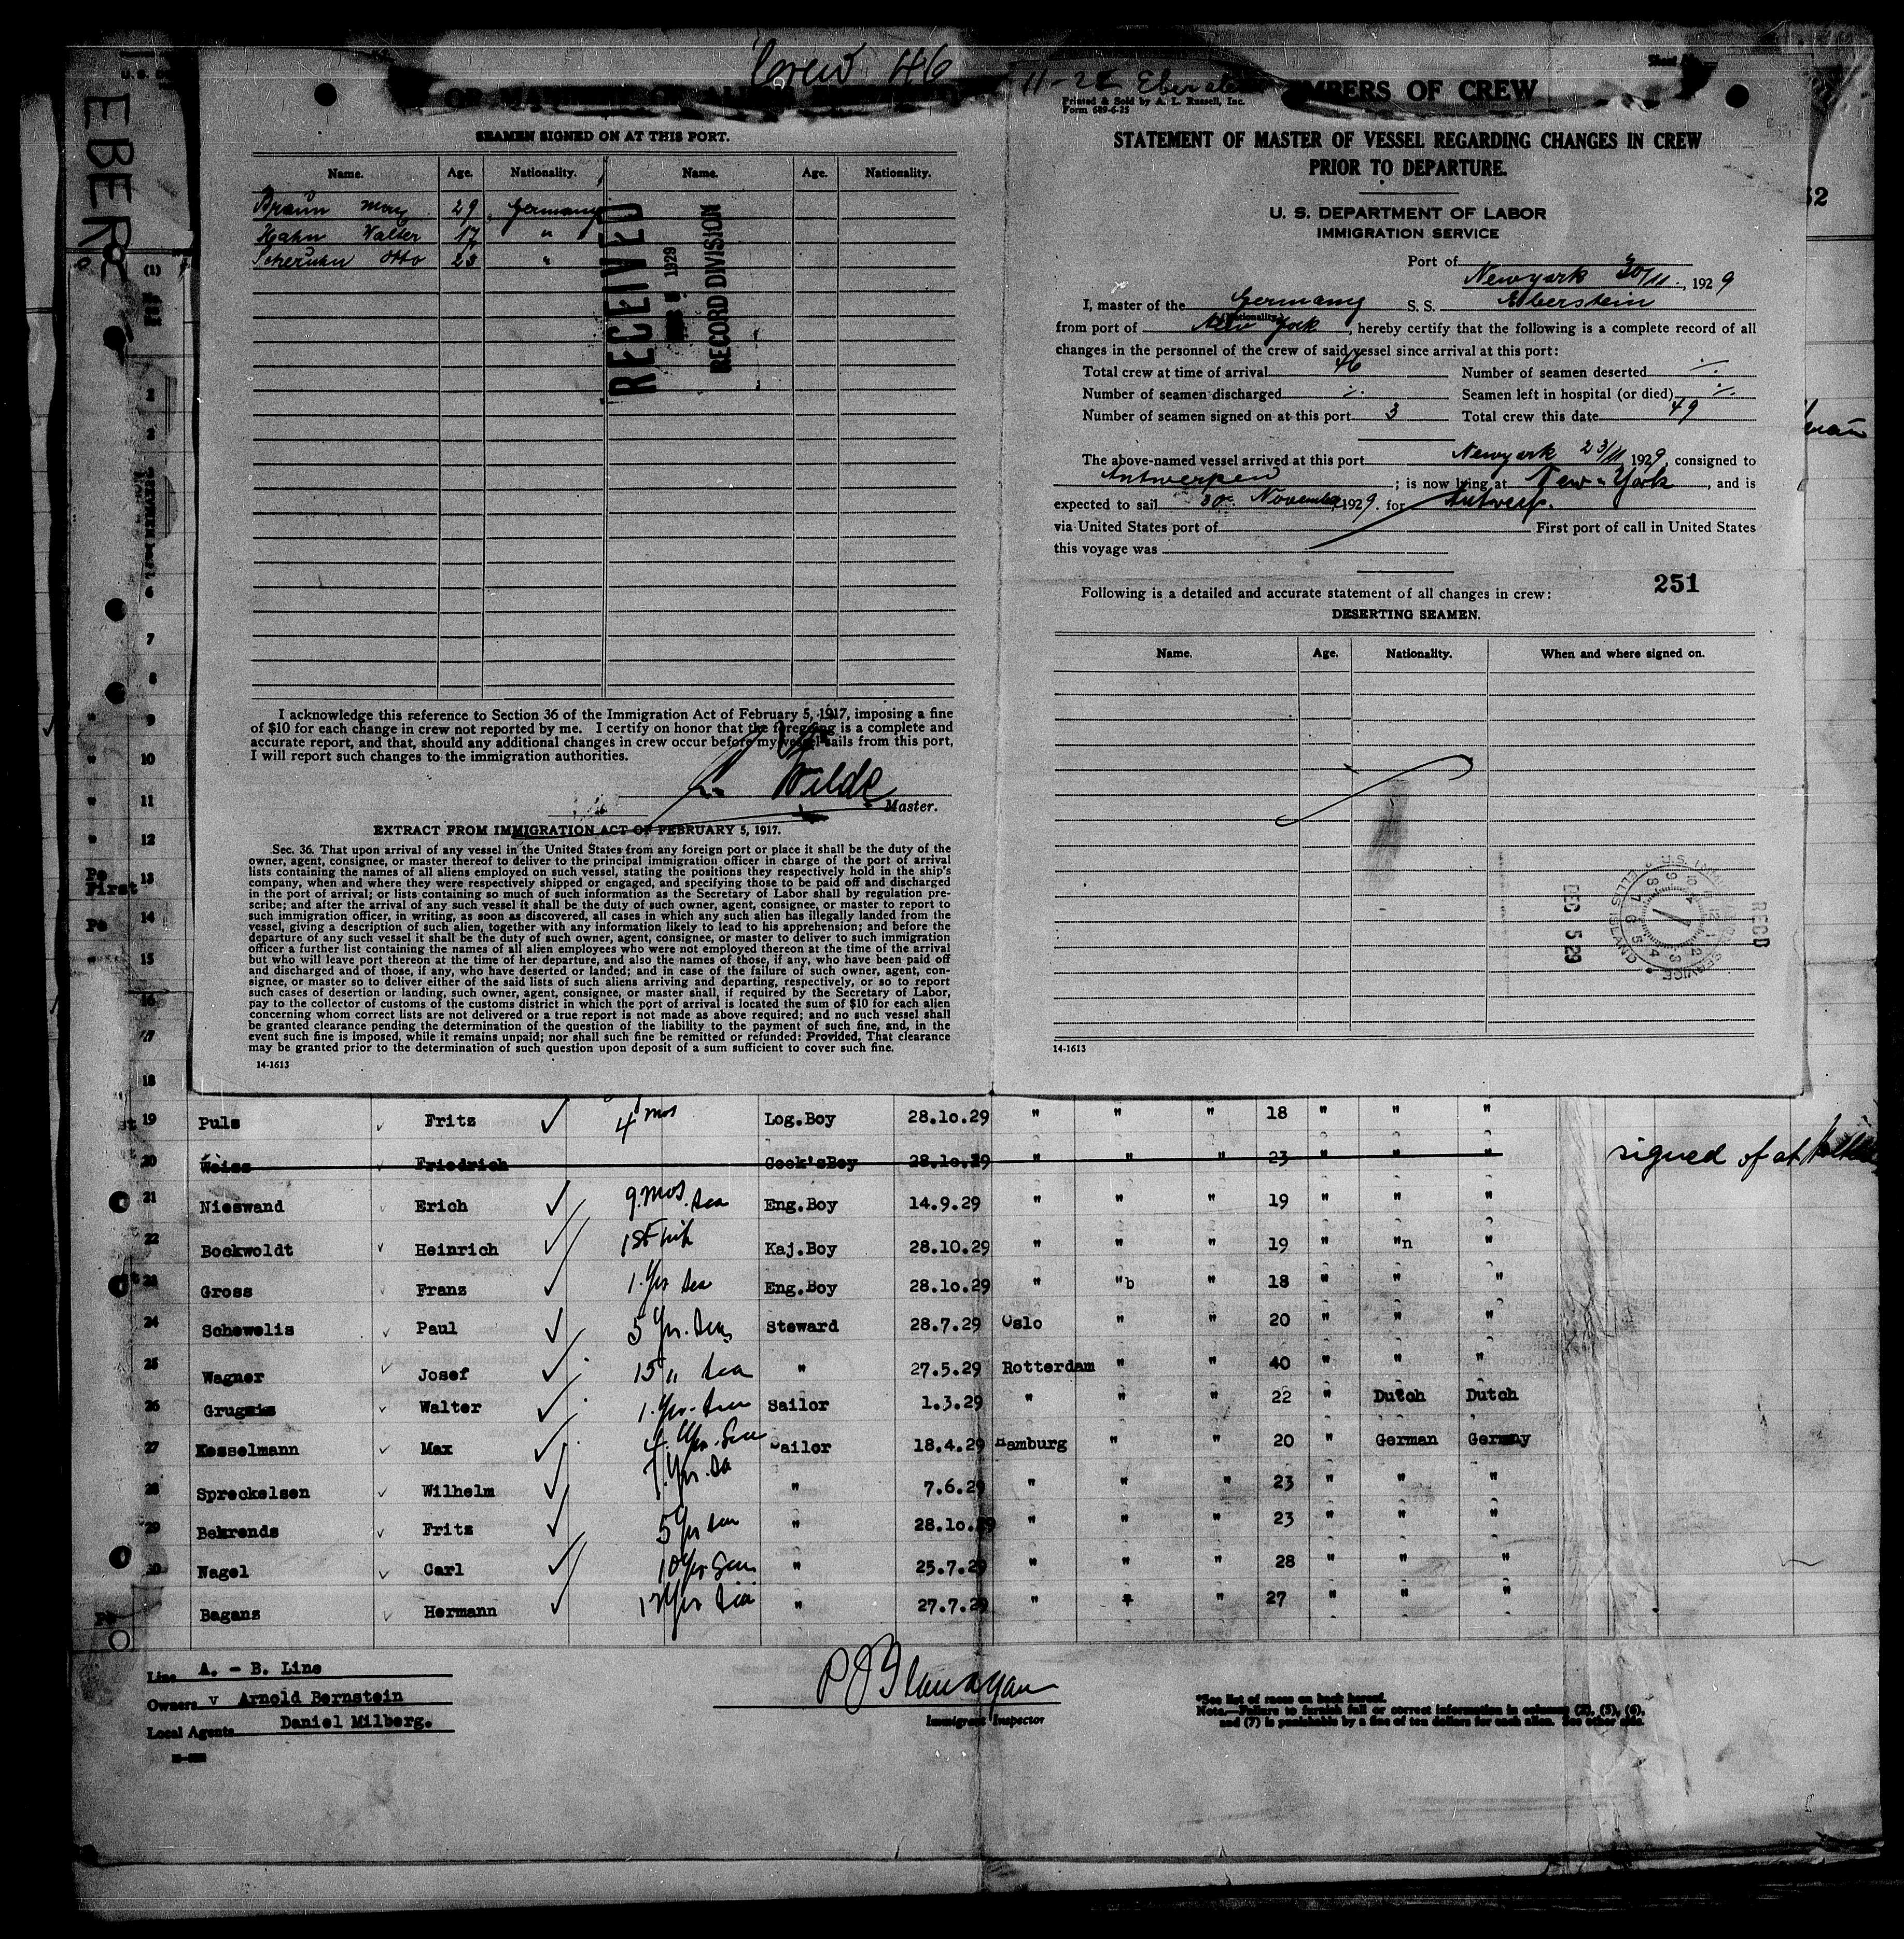 Crew 46
SEAMEN SIGNED ON AT THIS PORT.
Name. Age. Nationality. Name. Age. Nationality.
Braun 29 Germany
Hahn Walter 17 "
Otto 23 "
RECEIVED
1929
RECORD DIVISION
I acknowledge this reference to Section 36 of the Immigration Act of February 5, 1917, imposing a fine
of $10 for each change in crew not reported by me. I certify on honor that the foregoing is a complete and
accurate report, and that, should any additional changes in crew occur before my vessel sails from this port,
I will report such changes to the immigration authorities.
Wilde
Master.
EXTRACT FROM IMMIGRATION ACT OF FEBRUARY 5, 1917.
Sec. 36. That upon arrival of any vessel in the United States from any foreign port or place it shall be the duty of the
owner, agent, consignee, or master thereof to deliver to the principal immigration officer in charge of the port of arrival
lists containing the names of all aliens employed on such vessel, stating the positions they respectively hold in the ship's
company, when and where they were respectively shipped or engaged, and specifying those to be paid off and discharged
in the port of arrival; or lists containing so much of such information as the Secretary of Labor shall by regulation pre-
scribe; and after the arrival of any such vessel it shall be the duty of such owner, agent, consignee, or master to report to
such immigration officer, in writing, as soon as discovered, all cases in which any such alien has illegally landed from the
vessel, giving a description of such alien, together with any information likely to lead to his apprehension; and before the
departure of any such vessel it shall be the duty of such owner, agent, consignee, or master to deliver to such immigration
officer a further list containing the names of all alien employees who were not employed thereon at the time of the arrival
but who will leave port thereon at the time of her departure, and also the names of those, if any, who have been paid off
and discharged and of those, if any, who have deserted or landed; and in case of the failure of such owner, agent, con-
signee, or master so to deliver either of the said lists of such aliens arriving and departing, respectively, or so to report
such cases of desertion or landing, such owner, agent, consignee, or master shall, if required by the Secretary of Labor,
pay to the collector of customs of the customs district in which the port of arrival is located the sum of $10 for each alien
concerning whom correct lists are not delivered or a true report is not made as above required; and no such vessel shall
be granted clearance pending the determination of the question of the liability to the payment of such fine, and, in the
event such fine is imposed, while it remains unpaid; nor shall such fine be remitted or refunded: Provided, That clearance
may be granted prior to the determination of such question upon deposit of a sum sufficient to cover such fine.
14-1613
MBERS OF CREW
Printed & Sold by A. L. Russell, Inc.
Form 689-6-25
STATEMENT OF MASTER OF VESSEL REGARDING CHANGES IN CREW
PRIOR TO DEPARTURE.
U. S. DEPARTMENT OF LABOR
IMMIGRATION SERVICE
Port of
Newyork 30/11, 1929
I, master of the Germany S. S. Eberstein
(Nationality)
from port of New York, hereby certify that the following is a complete record of all
changes in the personnel of the crew of said vessel since arrival at this port:
Total crew at time of arrival 46 Number of seamen deserted ./.
Number of seamen discharged ./. Seamen left in hospital (or died) ./.
Number of seamen signed on at this port 3 Total crew this date 49
The above-named vessel arrived at this port Newyork 23/11, 1929, consigned to
Antwerpen; is now lying at New-York, and is
expected to sail 30. November, 1929. for Antwerp.
via United States port of First port of call in United States
this voyage was
251
Following is a detailed and accurate statement of all changes in crew:
DESERTING SEAMEN.
Name. Age. Nationality. When and where signed on.
DEC 5 29
REC'D
14-1613
EBER
(1)
1
2
6
7
8
" 9
" 10
" 11
" 12
Pe First 13
Pe 14
" 15
16
17
18
19 Puls Fritz 4 mos Log.Boy 28.10.29 " " " 18 " " "
20 Weiss Friedrich Cook'sBoy 28.10.29 " " " 23 " " " signed of at
21 Nieswand Erich 9.mos.sea Eng.Boy 14.9.29 " " " 19 " " "
22 Bockwoldt Heinrich 1st trip Kaj.Boy 28.10.29 " " " 19 " "n "
23 Gross Franz 1.Yr sea Eng.Boy 28.10.29 " "b " 18 " " "
24 Schewelis Paul 5 Yr. sea Steward 28.7.29 Oslo " " 20 " " "
25 Wagner Josef 15 " sea " 27.5.29 Rotterdam " " 40 " " "
26 Walter 1.Yr. sea Sailor 1.3.29 " " " 22 " Dutch Dutch
27 Kesselmann Max 4. Yr. Sea Sailor 18.4.29 Hamburg " " 20 " German Germny
28 Spreckelsen Wilhelm " 7.6.29 " " " 23 " " "
29 Behrends Fritz 5 Yr sea " 28.10.29 " " " 23 " " "
30 Nagel Carl 10 Yr. Sea " 25.7.29 " " " 28 " " "
Bagans Hermann " 27.7.29 " " " 27 " " "
Line A. - B. Line
Owners v Arnold Bernstein
Local Agents Daniel Milberg.
P J Flanagan
Immigrant Inspector
*See list of races on back hereof.
Note.—Failure to furnish full or correct information in columns (2), (5), (6),
and (7) is punishable by a fine of ten dollars for each alien. See other side.